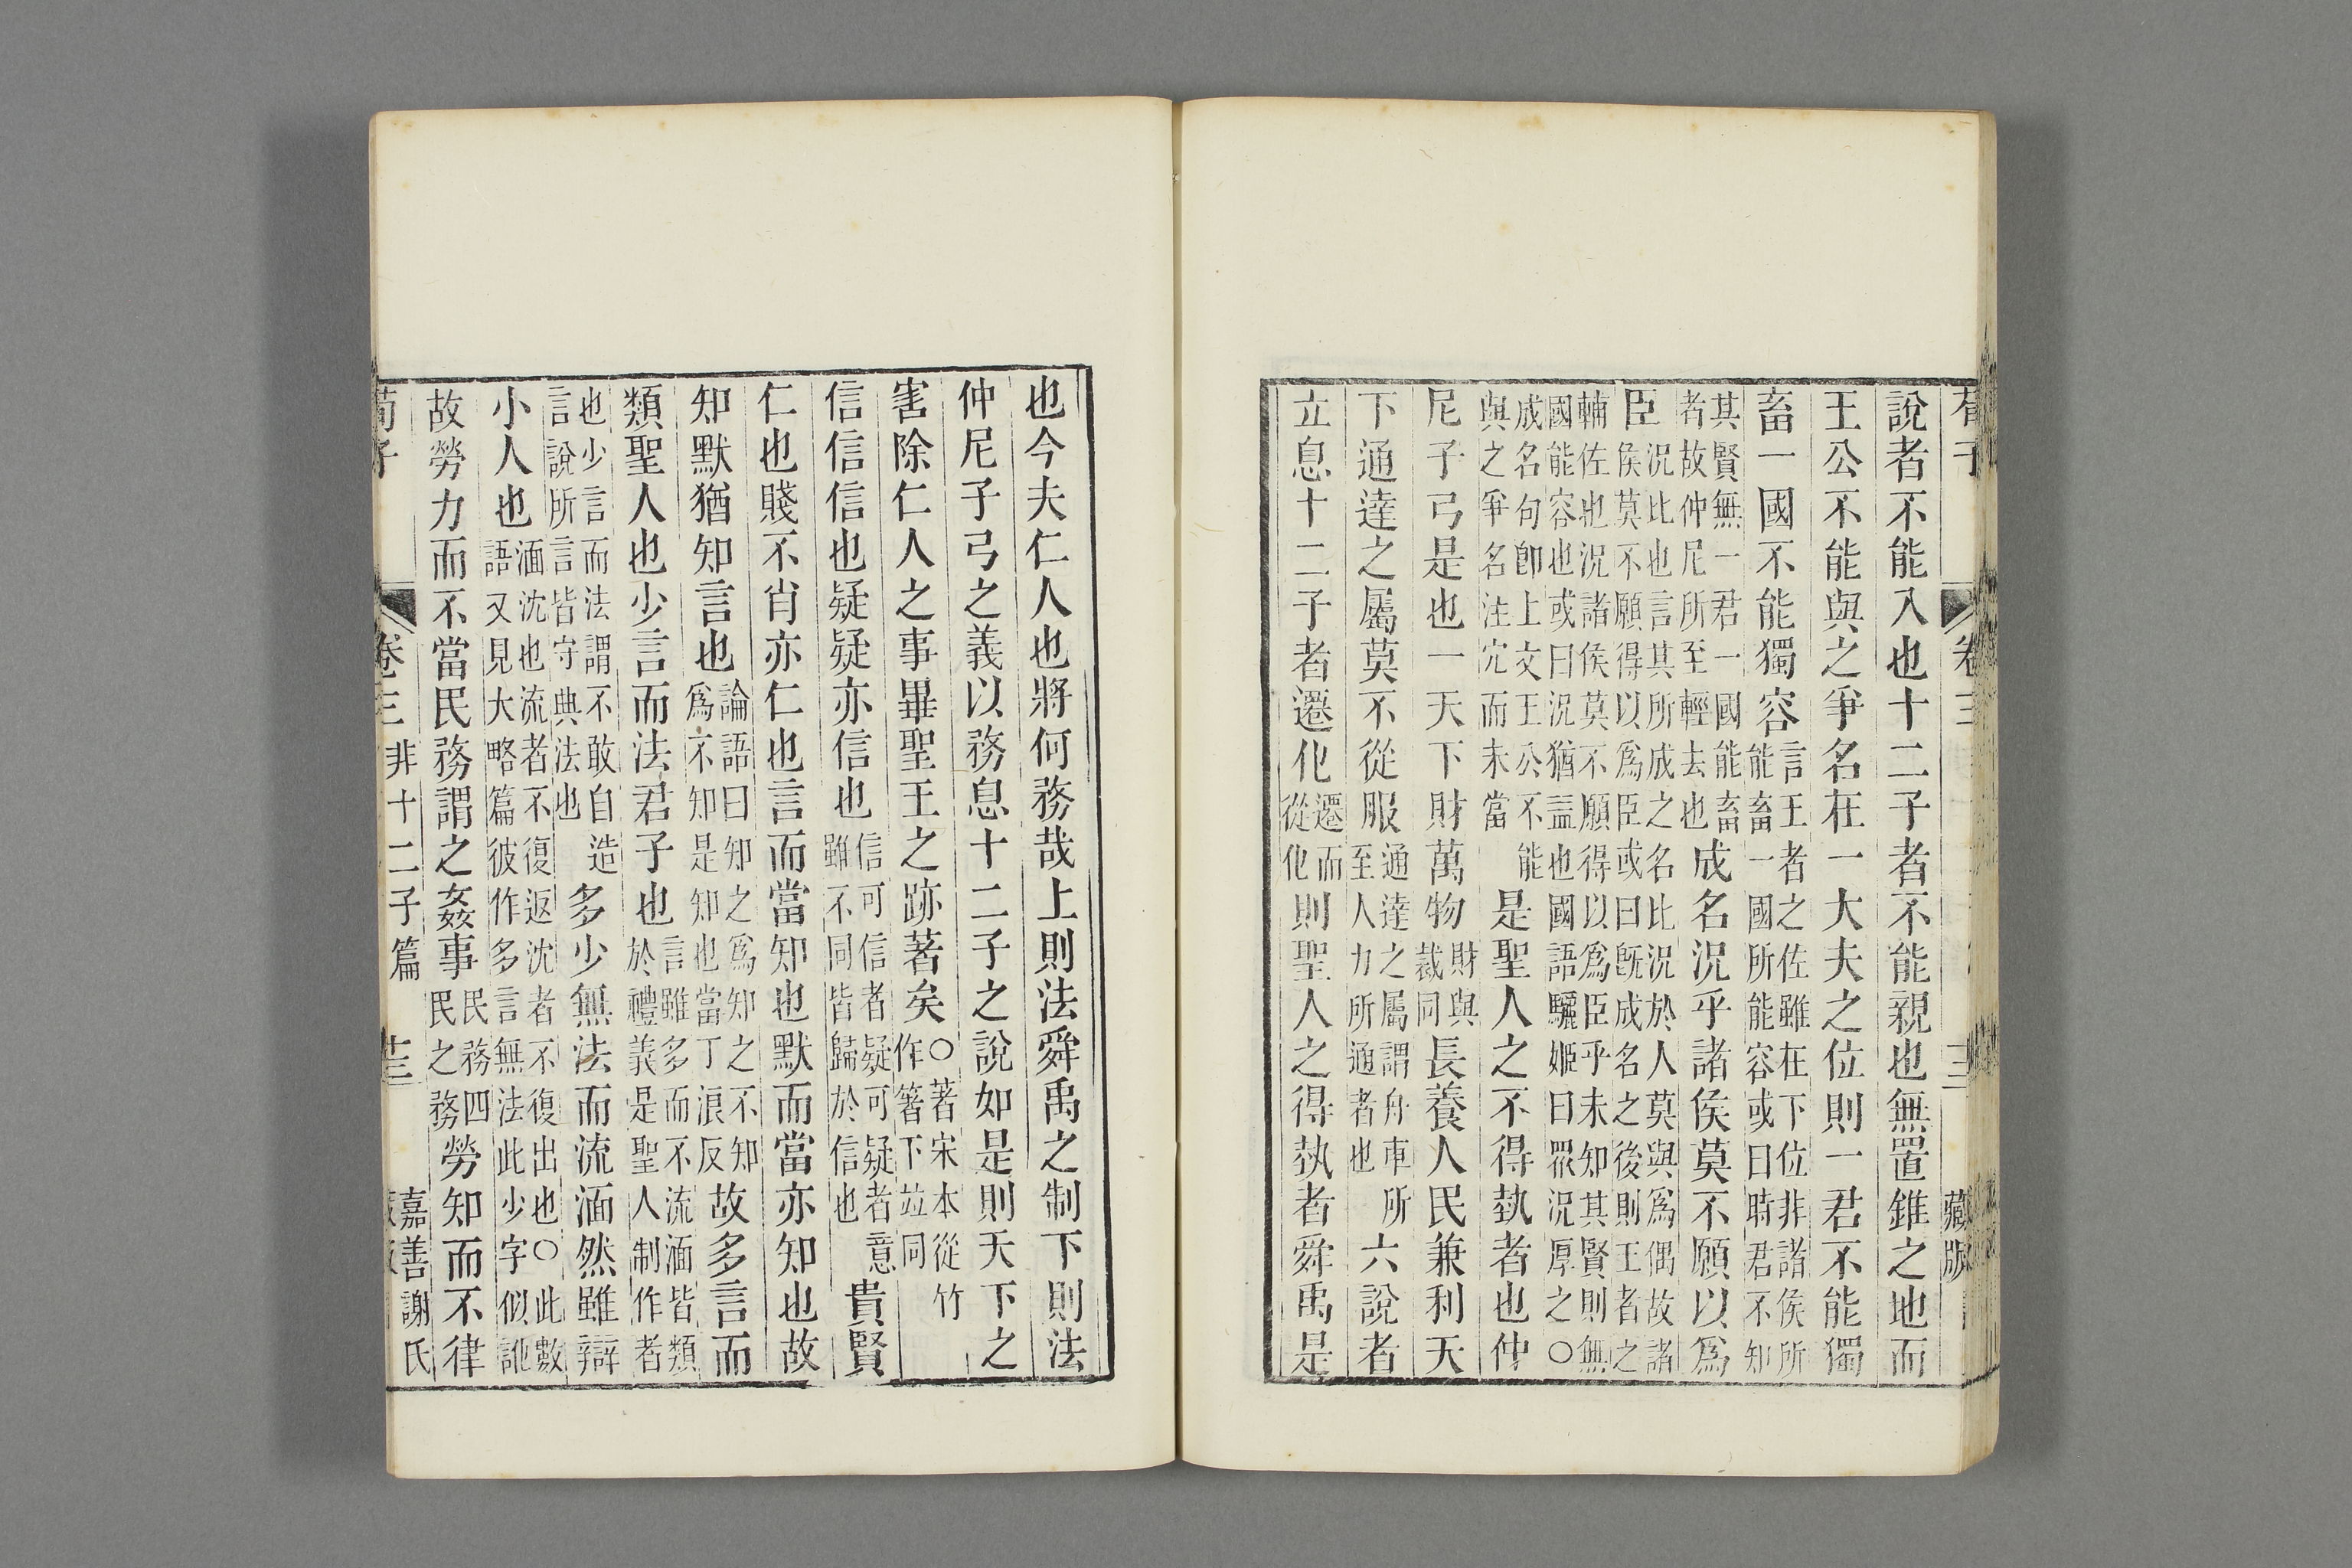 荀子 卷三 藏版
說者不能入也十二子者不能親也無置錐之地而
王公不能與之爭名在一大夫之位則一君不能獨
畜一國不能獨容言王者之佐雖在下位非諸侯所
能畜一國所能容或曰時君不知
其賢無一君一國能畜
者故仲尼所至輕去也成名況乎諸侯莫不願以爲
臣況比也言其所成之名比況於人莫與爲偶故諸
侯莫不願得以爲臣或曰旣成名之後則王者之
輔佐也況諸侯莫不願得以爲臣乎未知其賢則無
國能容也或曰況猶益也國語驪姬曰眾況厚之○
成名句卽上文王公不能
與之爭名注宂而未當是聖人之不得埶者也仲
尼子弓是也一天下財萬物財與
裁同長養人民兼利天
下通達之屬莫不從服通達之屬謂舟車所
至人力所通者也六說者
立息十二子者遷化遷而
從化則聖人之得埶者舜禹是
也今夫仁人也將何務哉上則法舜禹之制下則法
仲尼子弓之義以務息十二子之說如是則天下之
害除仁人之事畢聖王之跡著矣○著宋本從竹
作箸下竝同
信信信也疑疑亦信也信可信者疑可疑者意
雖不同皆歸於信也貴賢
仁也賤不肖亦仁也言而當知也默而當亦知也故
知默猶知言也論語曰知之爲知之不知
爲不知是知也當丁浪反故多言而
類聖人也少言而法君子也言雖多而不流湎皆類
於禮義是聖人制作者
也少言而法謂不敢自造
言說所言皆守典法也多少無法而流湎然雖辯
小人也湎沈也流者不復返沈者不復出也○此數
語又見大略篇彼作多言無法此少字似訛
故勞力而不當民務謂之姦事民務四
民之務勞知而不律
荀子 卷三 非十二子篇 十三 嘉善謝氏